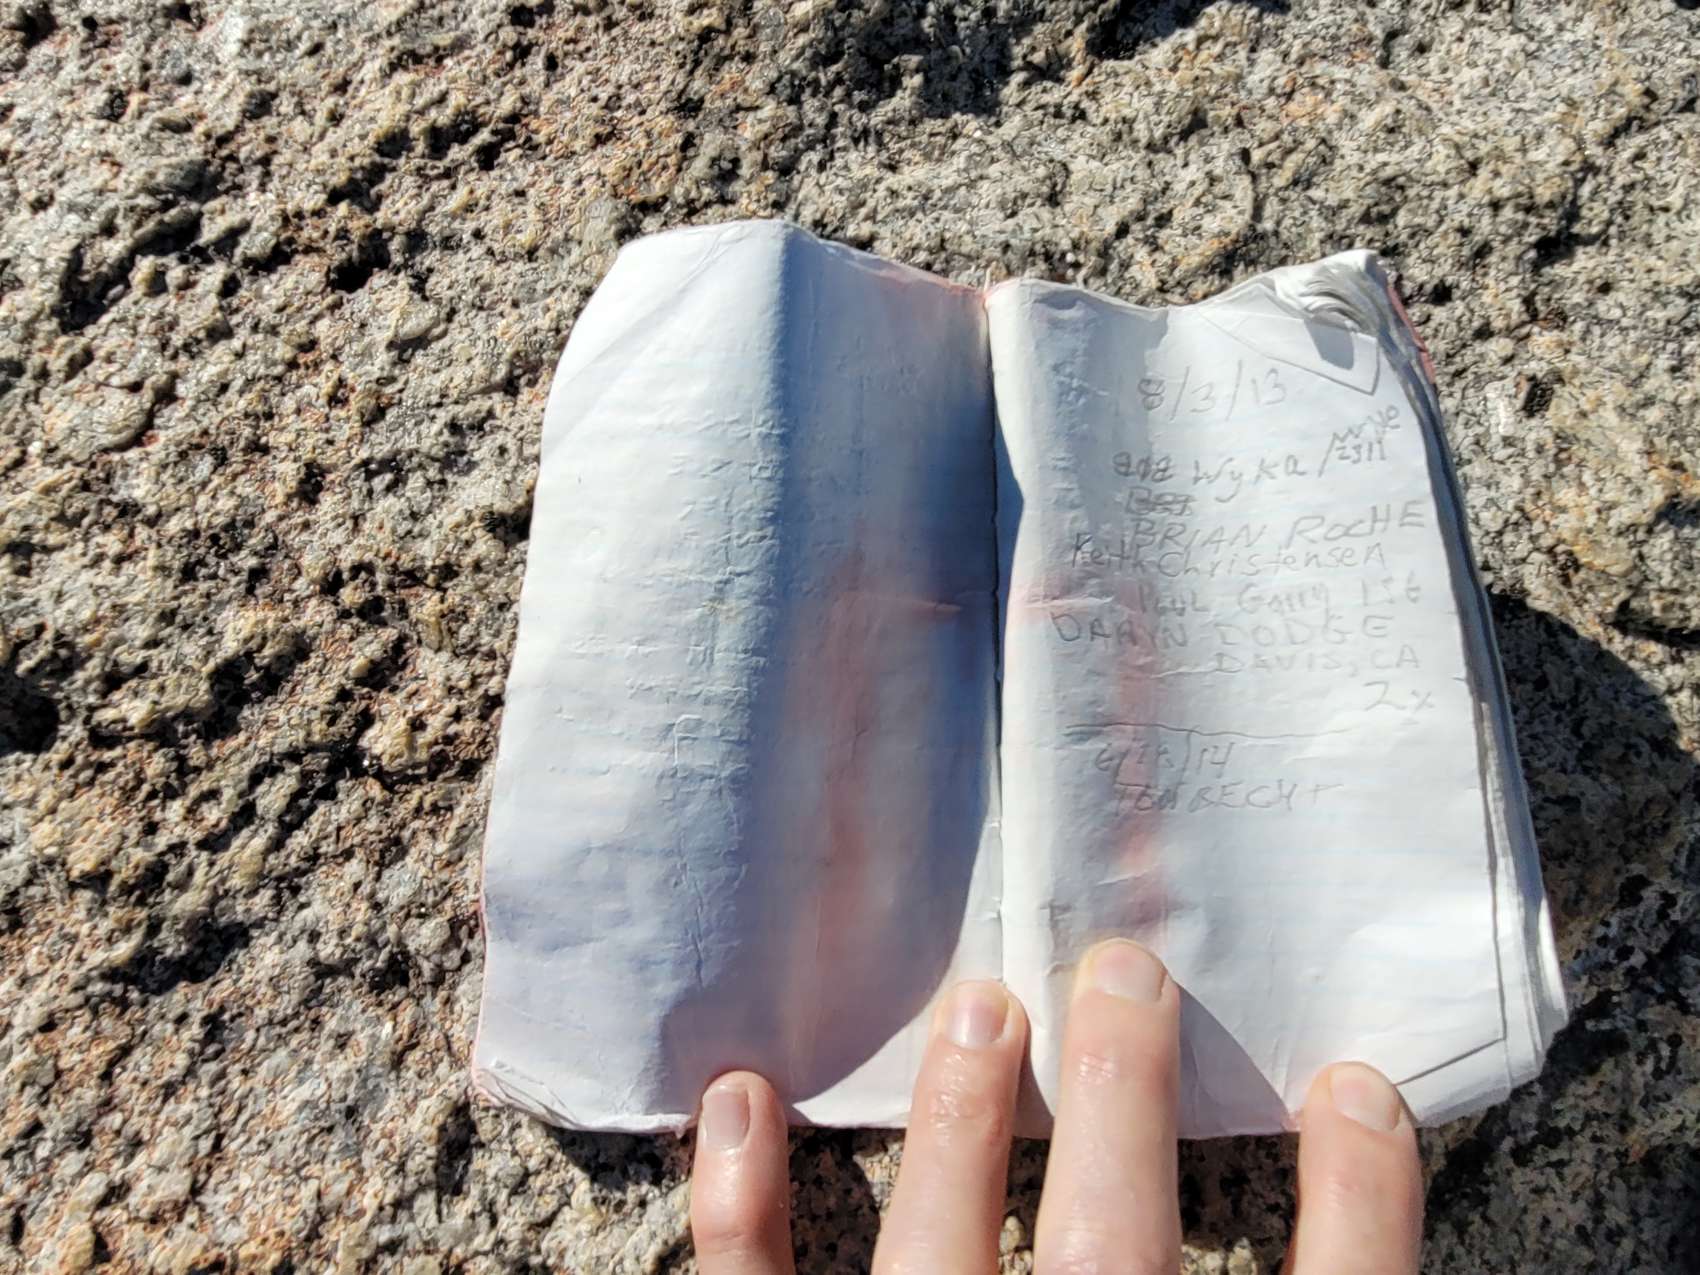 8/3/13
Wyka /
BRIAN ROCHE
Keith Christensen
Paul Garry
DARYN DODGE
DAVIS, CA
2x
/14
TOM BECHT